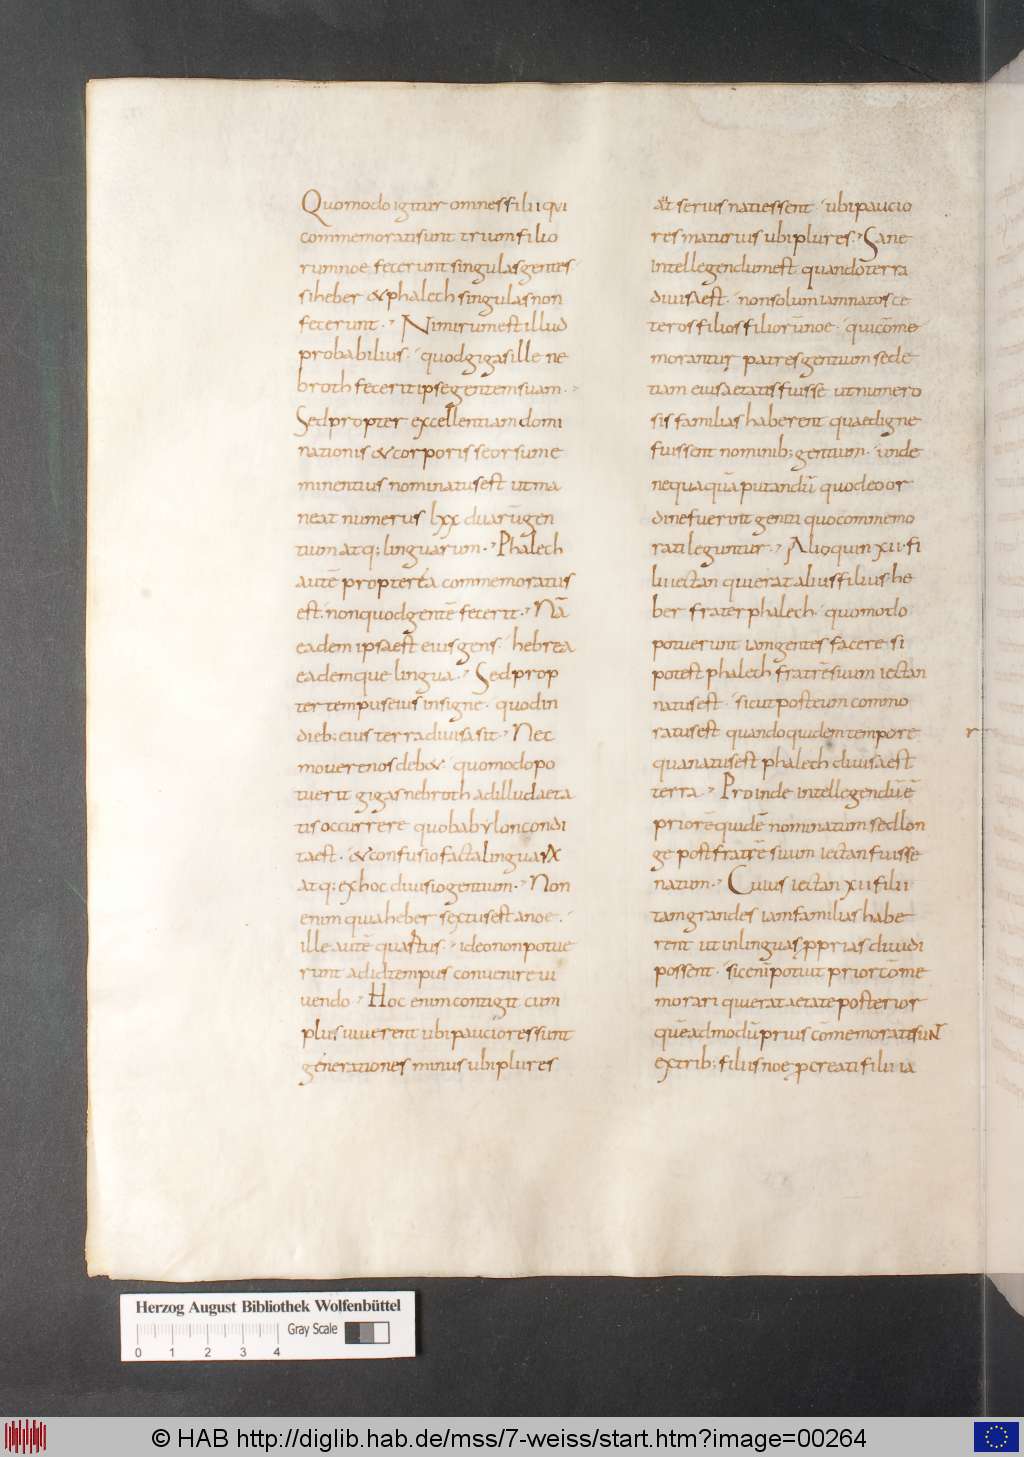 Quomodo igitur omnes filii qui
commemorati sunt trium filio
rum noe fecerunt singulas gentes
si heber & phalech singulas non
fecerunt. Nimirum est illud
probabilius. quod gigas ille ne
broth fecerit ipse gentem suam.
Sed propter excellentiam domi
nationis & corporis seorsum e
minentius nominatus est ut ma
neat numerus lxx duarū gen
tium atq; linguarum. Phalech
autē propterea commemoratus
est. non quod gentē fecerit. Nā
eadem ipsa est eius gens. hebrea
eademque lingua. Sed prop
ter tempus eius insigne. quod in
dieb; eius terra divisa sit. Nec
movere nos deb&. quomodo po
tuerit gigas nebroth ad illud aeta
tis occurrere quo babylon condi
ta est. & confusio facta linguarū
atq; ex hoc divisio gentium. Non
enim quia heber sextus est a noe.
ille autē quartus. ideo non potue
runt ad id tempus convenire vi
vendo. Hoc enim contigit cum
plus viverent ubi pauciores sunt
generationes minus ubi plures
aut serius nati essent. ubi paucio
res maturius ubi plures. Sane
intellegendum est quando terra
divisa est. non solum iam natos ce
teros filios filiorū noe. qui cōme
morantur patres gentium sed e
tiam eius aetatis fuisse ut numero
sis familias haberent quae digne
fuissent nominib; gentium. unde
nequaquā putandū quod eo or
dine fuerint geniti quo commemo
rati leguntur. Alioquin xii fi
lii iectan qui erat alius filius he
ber frater phalech. quomodo
potuerunt iam gentes facere si
post phalech fratrē suum iectan
natus est. sicut post eum commo
ratus est quando quidem tempore
r
qua natus est phalech divisa est
terra. Proinde intellegendū ē
priorē quidē nominatum sed lon
ge post fratrē suum iectan fuisse
natum. Cuius iectan xii filii
tam grandes iam familias habe
rent ut in linguas p̱prias dividi
possent. sic enī potuit prior cōme
morari qui erat aetate posterior
quēadmodū prius cōmemorati sunt
ex trib; filiis noe ꝑcreati filii ia
Herzog August Bibliothek Wolfenbüttel
Gray Scale
0 1 2 3 4
© HAB http://diglib.hab.de/mss/7-weiss/start.htm?image=00264